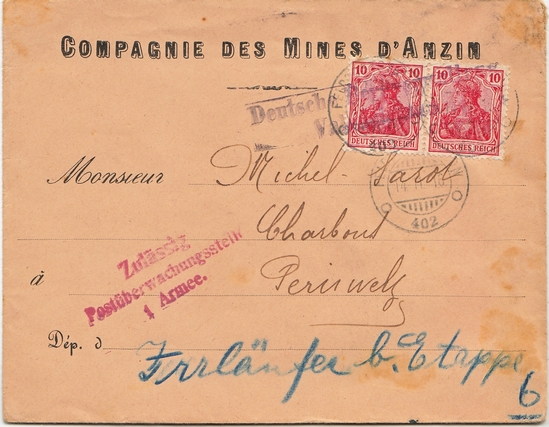 COMPAGNIE DES MINES D'ANZIN
10 10 10 10
DEUTSCHES REICH DEUTSCHES REICH
Deutsche
402
Monsieur Michel-Jarot
402
Charbons
Zulässig
Postüberwachungsstelle
1 Armee.
à Peruwelz
Dép. d
Irrläufer b. Etappe
6